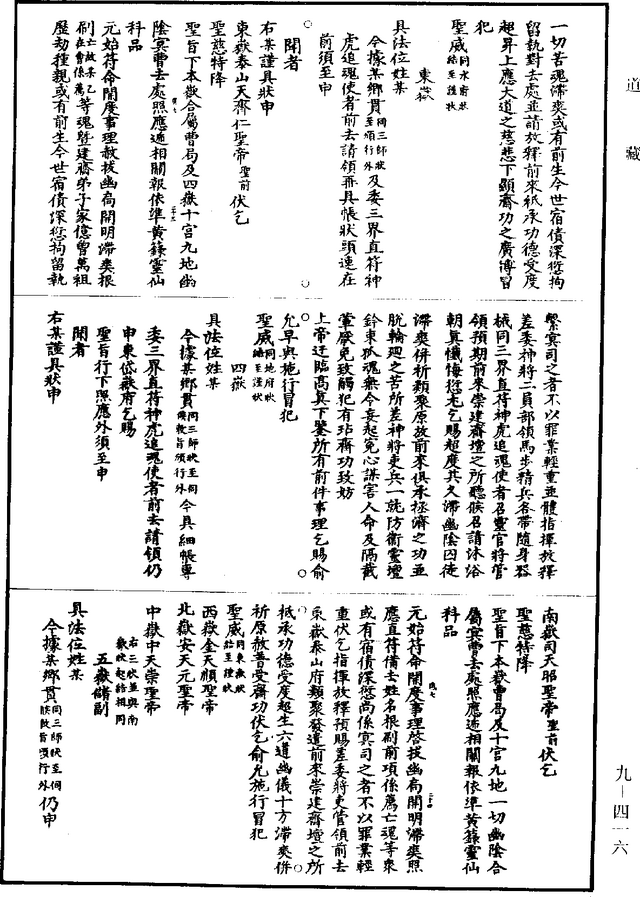 道藏
一切苦魂滯爽或有前生今世宿債深愆拘
留執對去處並請放釋前來紙承功德受度
超昇上應大道之慈悲下顯齋功之廣溥冒
犯
聖威同水府狀結至謹狀
東嶽
具法位姓某
今據某鄉貫同三師狀至頒行外及委三界直符神
虎追魂使者前去請領冊具帳狀頭連在
前須至申
聞者
右某謹具狀申
東嶽泰山天齊仁聖帝聖前伏乞
聖慈特降
聖旨下本嶽合屬曹局及四嶽十宮九地幽
陰冥曹去處照應遞相關報依準黃籙靈仙
科品
元始符命開度事理敕拔幽局開明滯爽根
刷亡故某乙在曹係薦等魂暨建齋弟子家億曾萬祖
歷劫種親或有前生今世宿債深愆拘留執
繫冥司之者不以罪業輕重並體指揮放釋
差委神將二員部領馬步精兵各帶隨身器
械同三界直符神虎追魂使者召靈官將管
領預期前來崇建齋壇之所聽候召請沐浴
朝真懺悔愆尤乞賜超度其久滯幽陰囚徒
滯爽併祈類聚原放前來俱承拯濟之功並
脫輪廻之苦所差神將吏兵一就防衛靈壇
鈐束孤魂無令妄起冤心謀害人命及隔截
葷厭免致觸犯有玷齋功致妨
上帝迂臨高真下鑒所有前件事理乞賜俞
允早與施行冒犯
聖威同地府狀結至謹狀
四嶽
具法位姓某
今據某鄉貫同三師狀至伺候敕旨頒行外今具細帳專
委三界直符神虎追魂使者前去請領仍
申東岱嶽府乞賜
聖旨行下照應外須至申
聞者
右某謹具狀申
南嶽司天昭聖帝聖前伏乞
聖慈特降
聖旨下本嶽曹局及十宮九地一切幽陰合
屬冥曹去處照應遞相關報依準黃籙靈仙
科品
元始符命開度事理啓拔幽局開明滯爽照
應直符備去姓名根刷前項係薦亡魂等衆
或有宿債深愆尚係冥司之者不以罪業輕
重伏乞指揮放釋預賜差委將吏管領前去
東嶽泰山府類聚發遣前來崇建齋壇之所
祗承功德受度超生六道幽儀十方滯爽併
祈原赦普受齋功伏乞俞允施行冒犯
聖威同東嶽狀結至謹狀
西嶽金天順聖帝
北嶽安天元聖帝
中嶽中天崇聖帝
右三狀並與南嶽狀起結相同
五嶽儲副
具法位姓某
今據某鄉貫同三師狀至伺候敕旨頒行外仍申
九-四一六